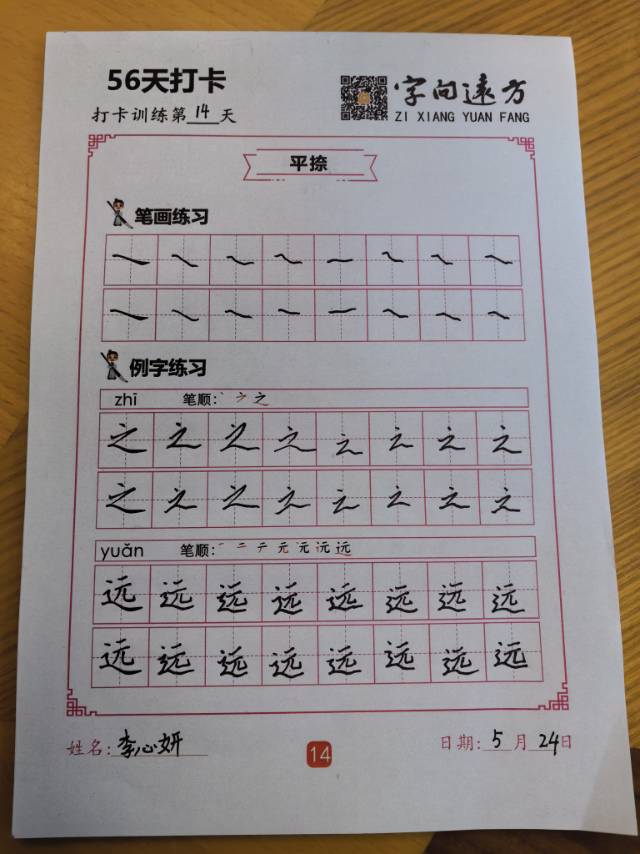 56天打卡
打卡训练第14天
字向遠方
ZI XIANG YUAN FANG
平捺
笔画练习
例字练习
zhī 笔顺：之
之 之 之 之 之 之 之 之
之 之 之 之 之 之 之 之
yuǎn 笔顺：一 二 テ 元 远 远
远 远 远 远 远 远 远 远
远 远 远 远 远 远 远 远
姓名：李心妍
14
日期：5月24日